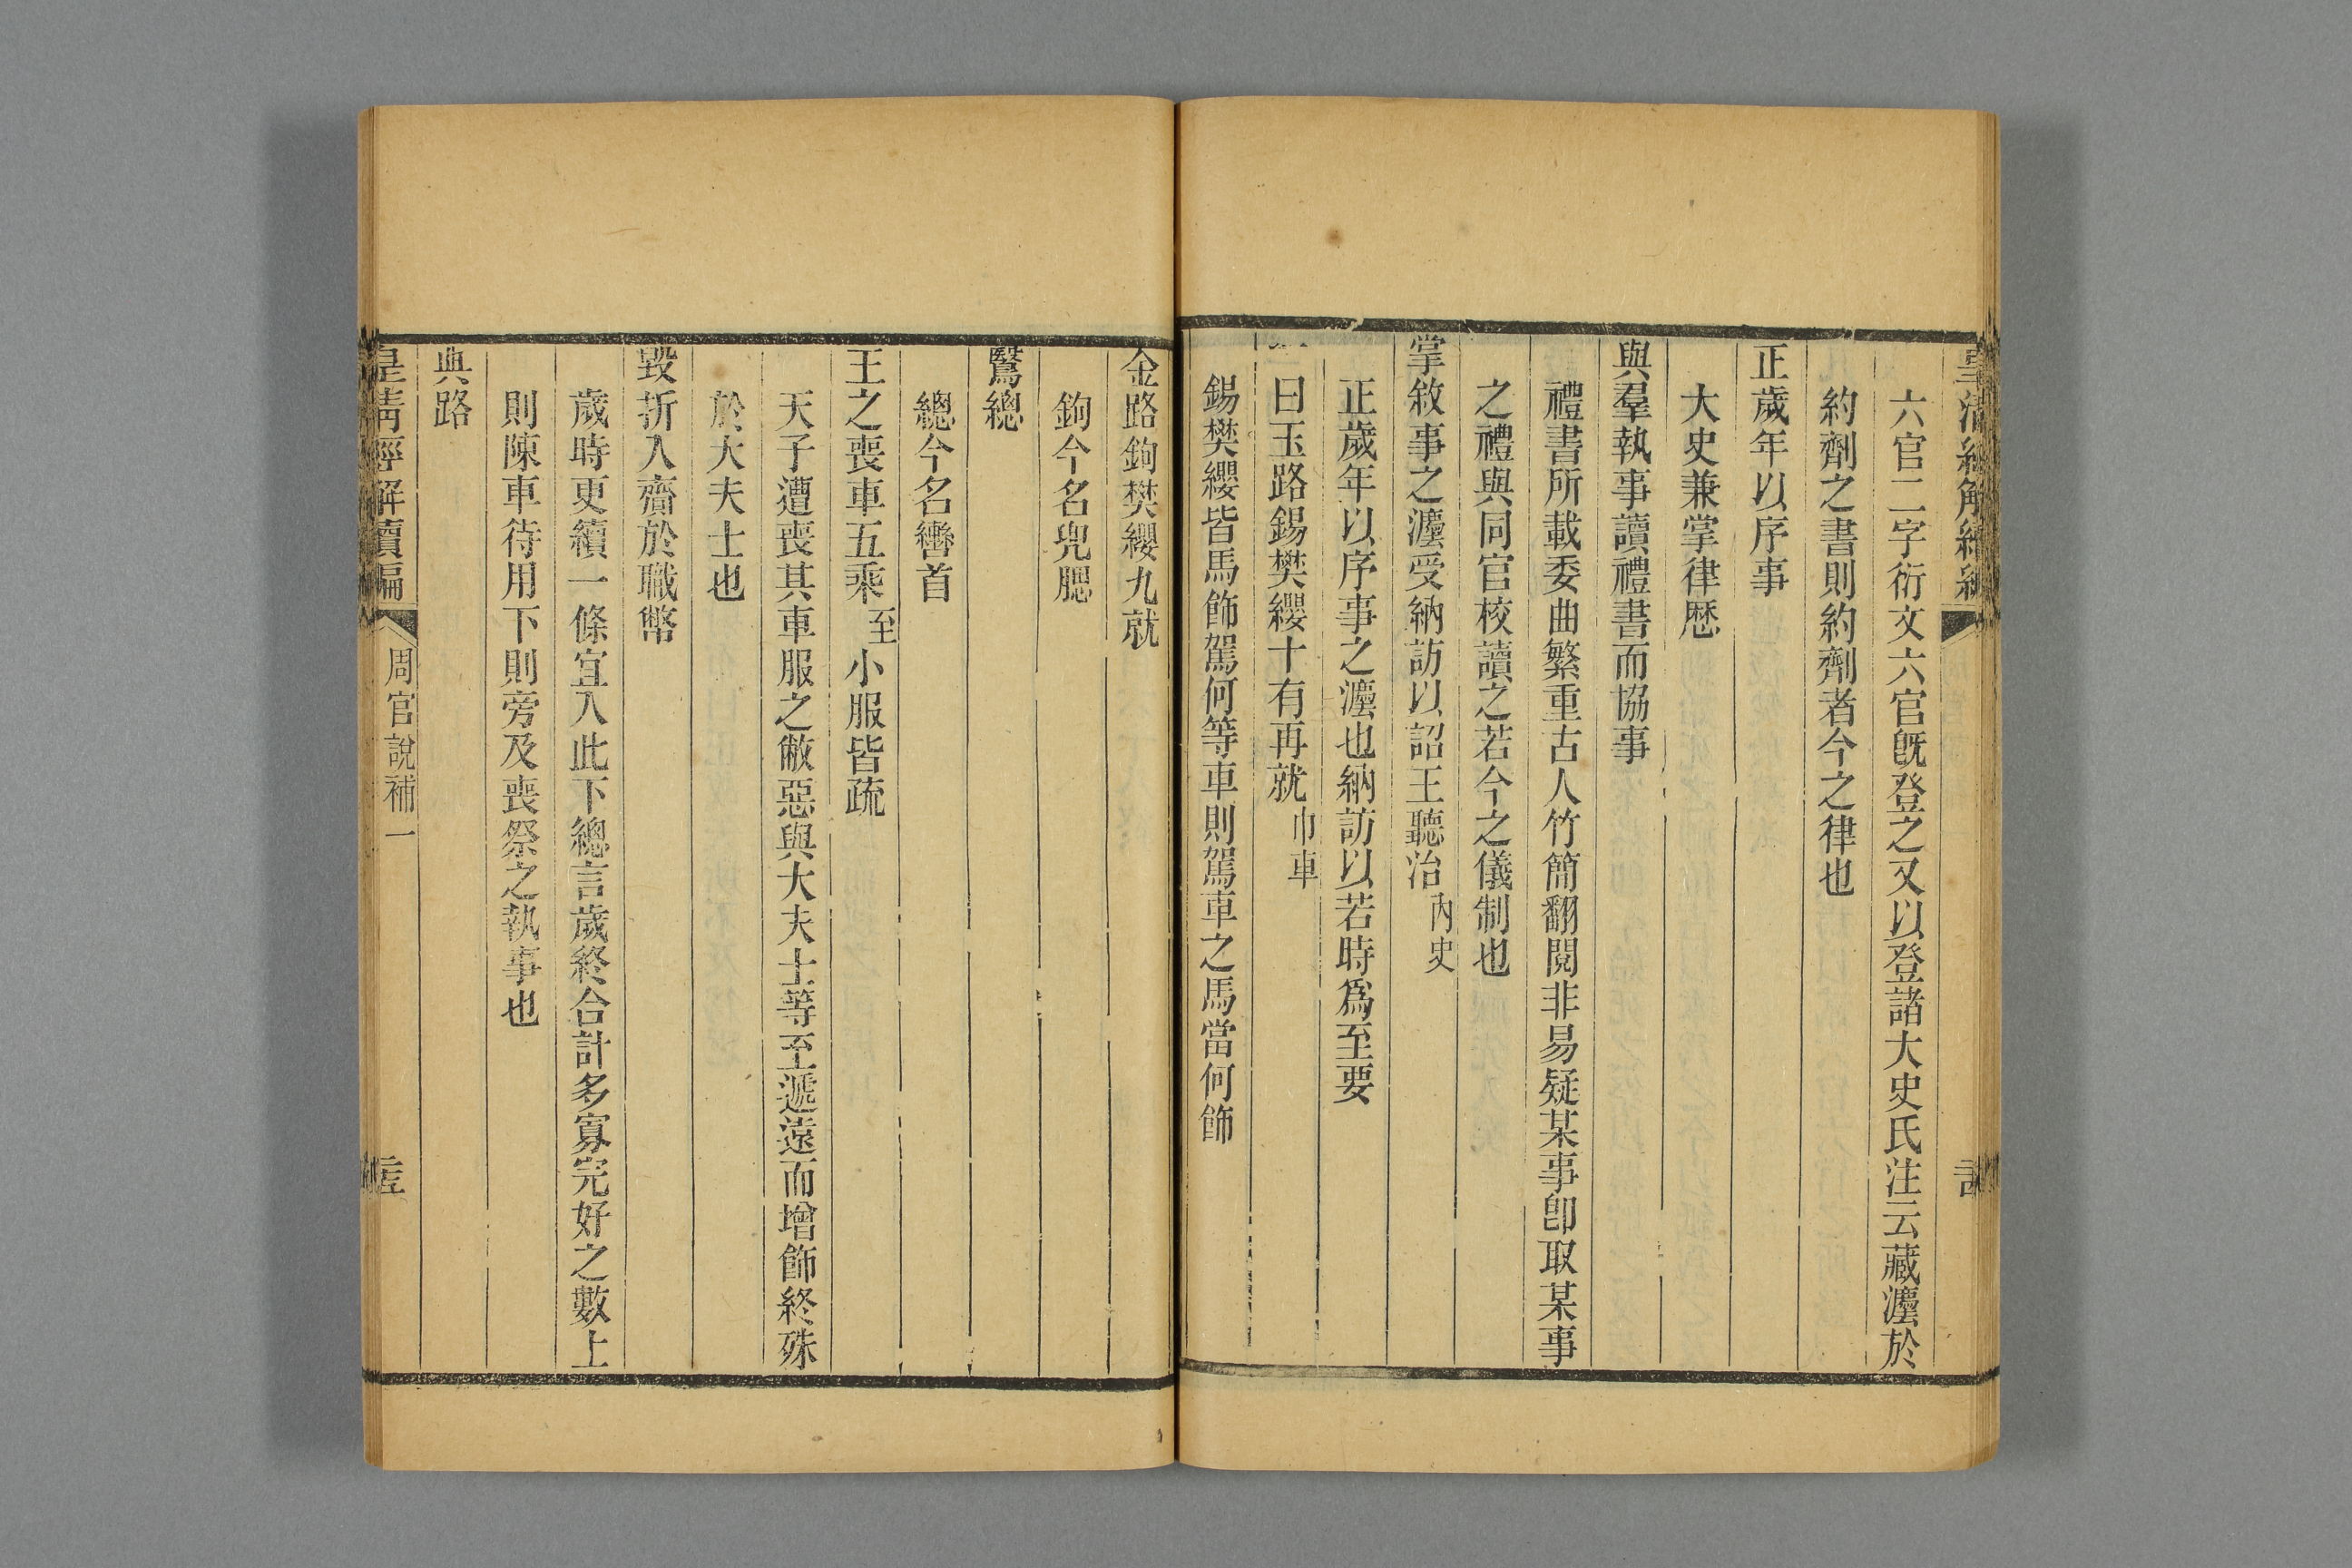 六官二字衍文六官旣登之又以登諸大史氏注云藏灋於
約劑之書則約劑者今之律也
正歲年以序事
大史兼掌律歷
與羣執事讀禮書而協事
禮書所載委曲繁重古人竹簡翻閱非易疑某事卽取某事
之禮與同官校讀之若今之儀制也
掌敘事之灋受納訪以詔王聽治內史
正歲年以序事之灋也納訪以若時爲至要
一曰玉路錫樊纓十有再就巾車
錫樊纓皆馬飾駕何等車則駕車之馬當何飾
金路鉤樊纓九就
鉤今名兜腮
鷖總
總今名轡首
王之喪車五乘至小服皆疏
天子遭喪其車服之敝惡與大夫士等至遞遠而增飾終殊
於大夫士也
毀折入齎於職幣
歲時更續一條宜入此下總言歲終合計多寡完好之數上
則陳車待用下則旁及喪祭之執事也
典路
皇清經解續編 周官說補一